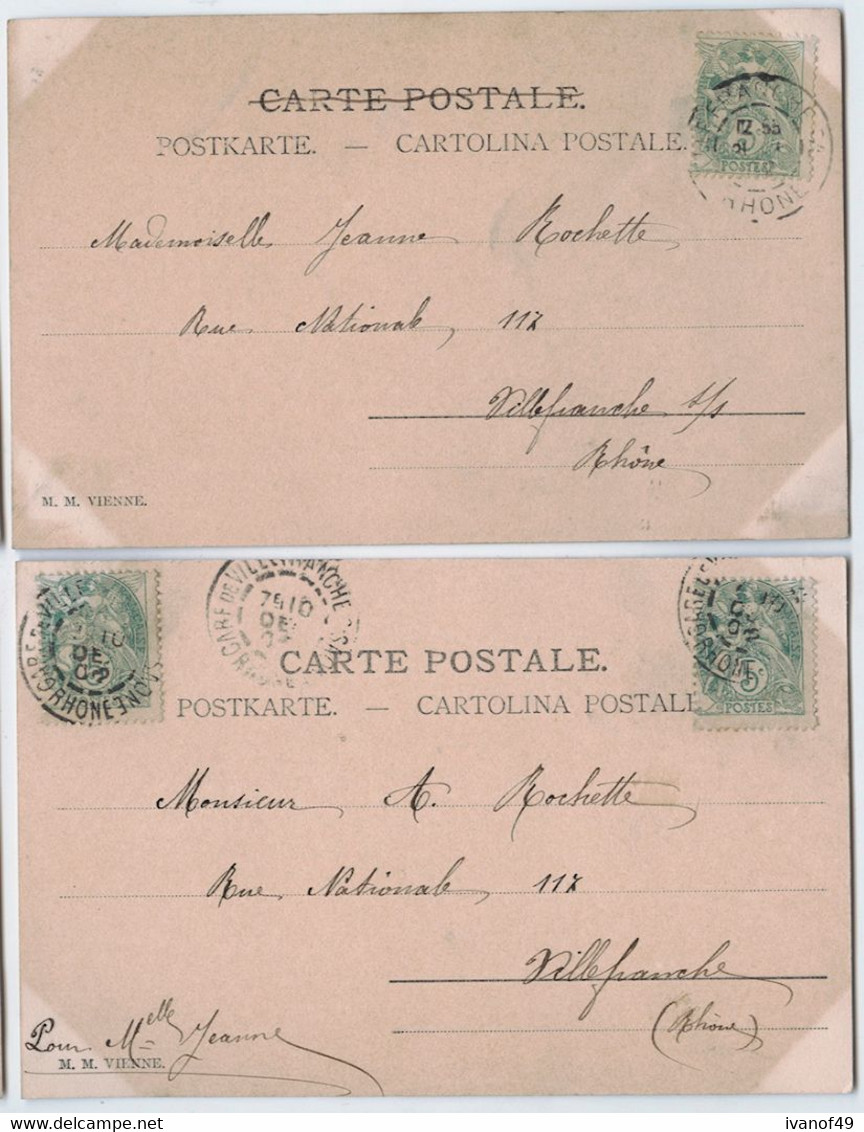 CARTE POSTALE.
POSTKARTE. — CARTOLINA POSTALE.
POSTES
RHONE
Mademoiselle Jeanne Rochette
Rue Nationale, 117
Villefranche s/s
Rhône
M. M. VIENNE.
GARE DE VILLE
RHONE
GARE DE VILLEFRANCHE
RHONE
5c
POSTES
CARTE POSTALE.
POSTKARTE. — CARTOLINA POSTALE
Monsieur A. Rochette
Rue Nationale 117
Villefranche
(Rhône)
Pour Melle Jeanne
M. M. VIENNE.
ivanof49